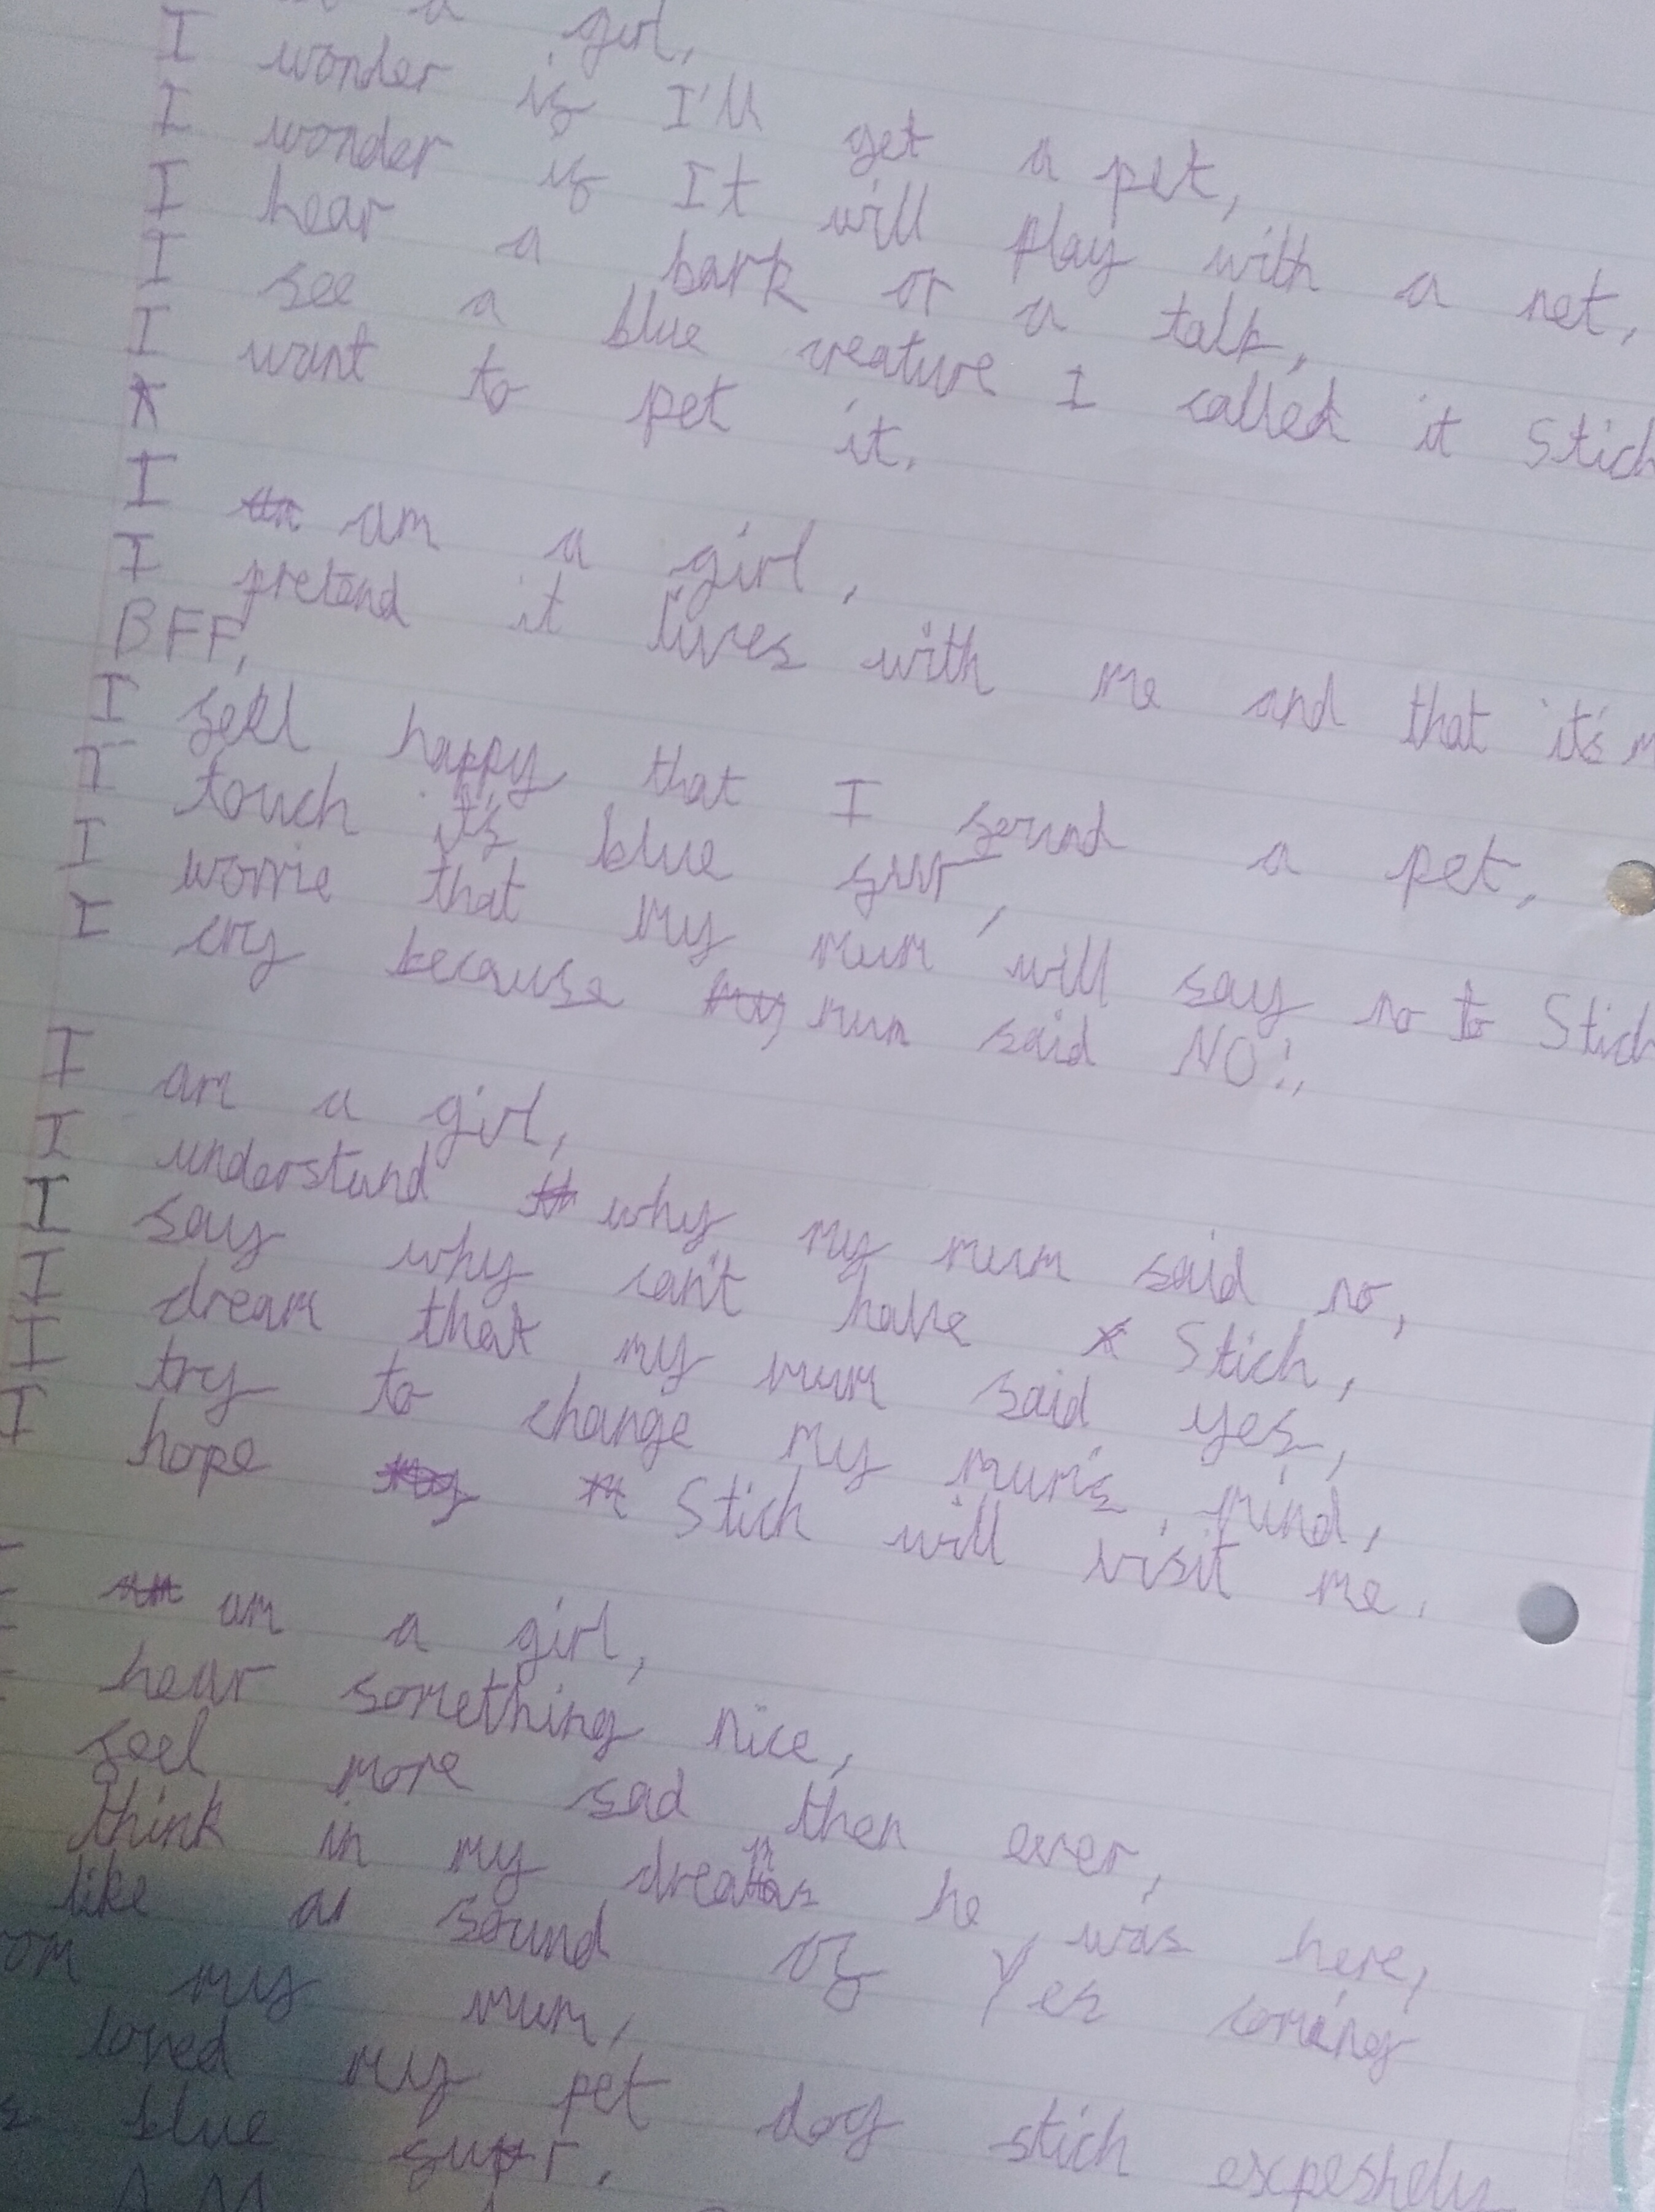 a girl,
I wonder if I'll get a pet,
I wonder if It will play with a net,
I hear a bark or a talk,
I see a blue creature I called it Stich
I want to pet it.
I am a girl,
I pretend it lives with me and that it's
BFF,
I feel happy that I found a pet,
I touch it's blue furr,
I worrie that my mum will say no to Stich
I cry because mum said NO!,
I am a girl,
I understand why my mum said no,
I say why can't have Stich,
I dream that my mum said yes,
I try to change my mum's mind,
I hope Stich will visit me.
am a girl,
hear something nice,
feel more sad then ever,
think in my dreams he was here,
like a sound of Yes coming
om my mum,
loved my pet dog stich expeshely
blue furr.